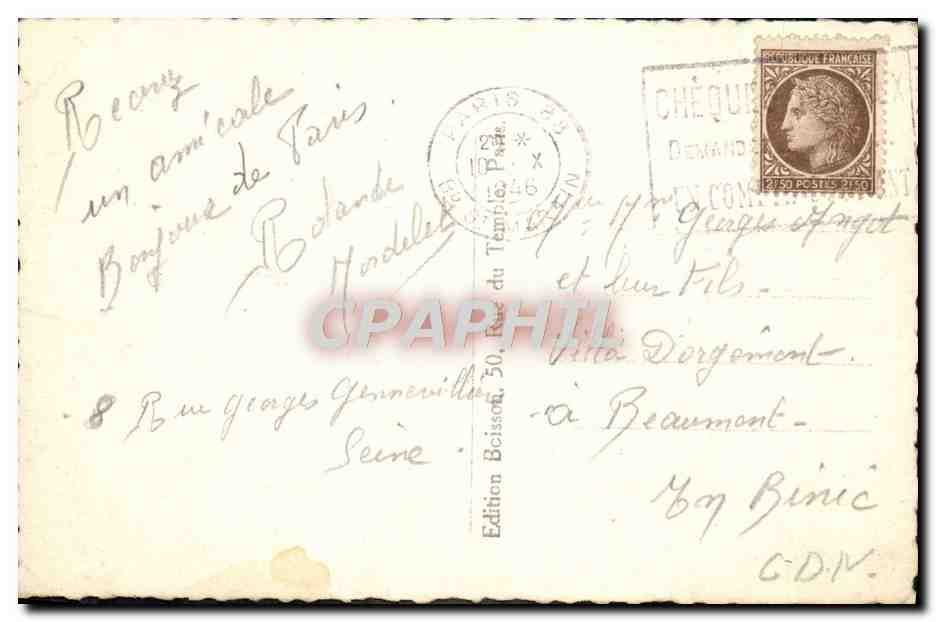 Recevez
un amicale
Bonjour de Paris.
Rolande
Mordelet
8 Rue Georges Gennevilliers
Seine.
Edition Boisson, 50, Rue du Temple, Paris.
PARIS
10 X
1946
CHÉQU
DEMAND
REPUBLIQUE FRANÇAISE
2F50 POSTES 2F50
Georges Angot
et leur Fils-
Villa D'orgemont.
à Beaumont-
En Binic
C.D.N.
CPAPHIL